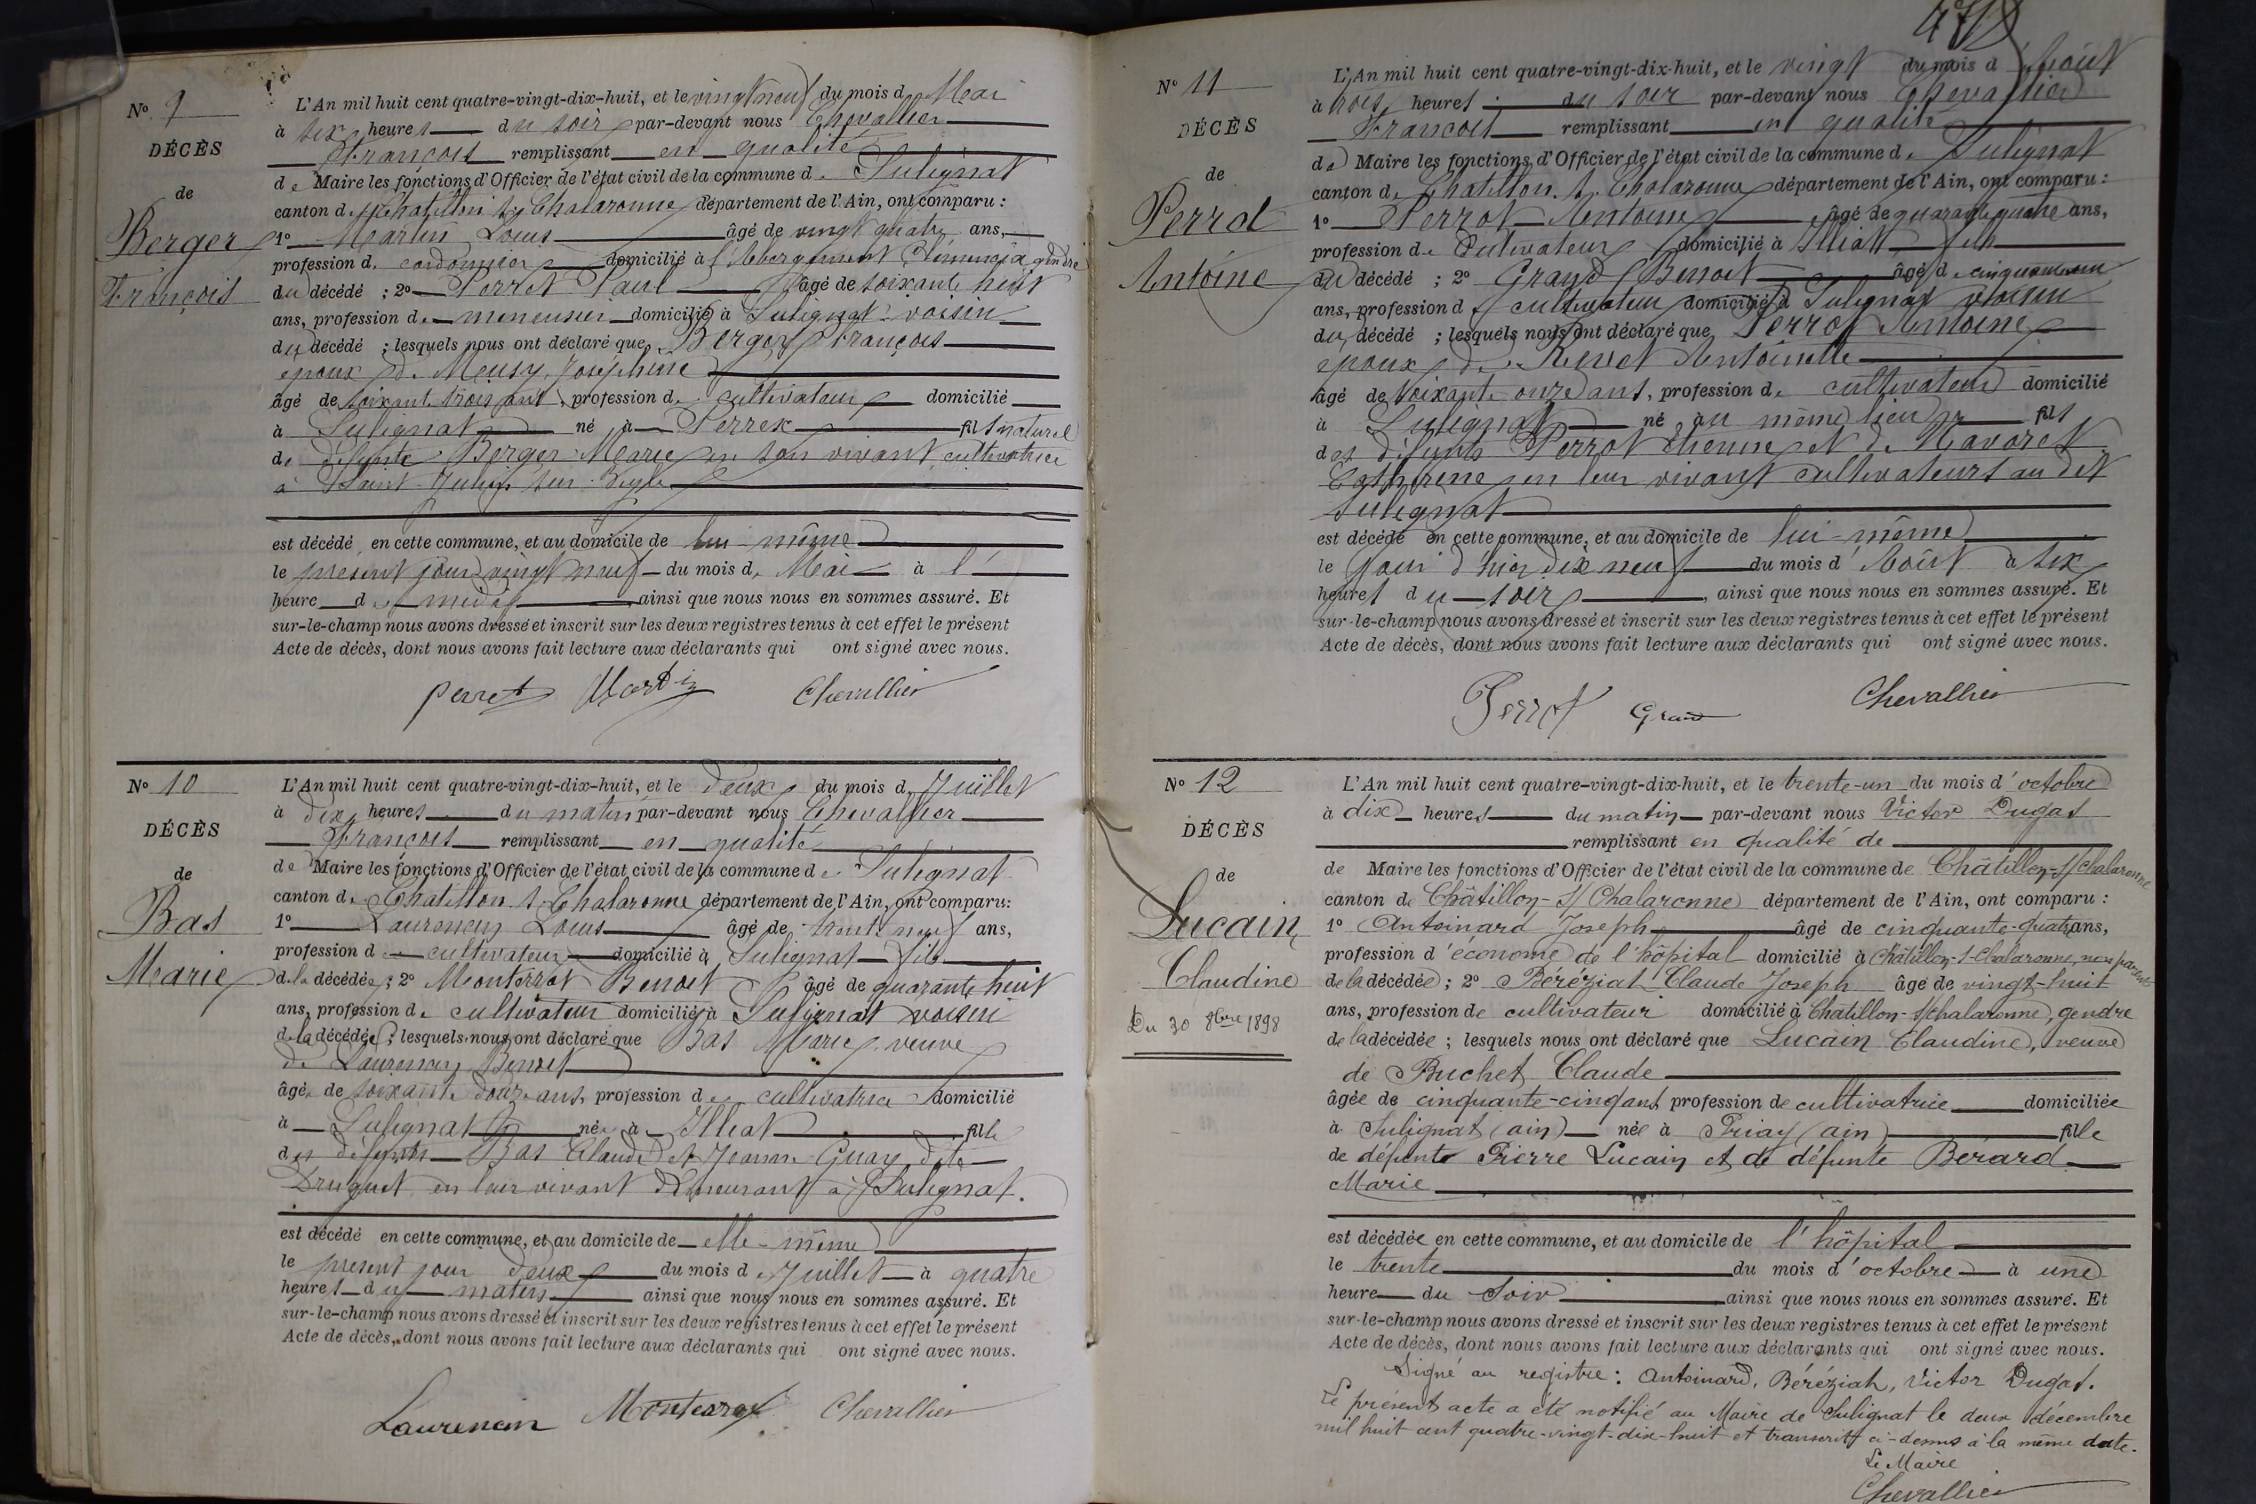 No 9
DÉCÈS
de
Berger
François
L'An mil huit cent quatre-vingt-dix-huit, et le vingt neuf du mois de Mai
à six heures du soir par-devant nous Chevallier
François remplissant en qualité
de Maire les fonctions d'Officier de l'état civil de la commune de Sulignat
canton de Chatillon s. Chalaronne département de l'Ain, ont comparu :
1o Martin Louis âgé de vingt quatre ans,
profession de cordonnier domicilié à l'Abergement Clémencia gendre
du décédé ; 2o Perret Paul âgé de soixante huit
ans, profession de menuisier domicilié à Sulignat voisin
du décédé ; lesquels nous ont déclaré que Berger François
époux de Meusy Joséphine
âgé de soixante trois ans, profession de cultivateur domicilié
à Sulignat né à Perrex fils naturel
de défunte Berger Marie en son vivant cultivatrice
à Saint Julien sur Veyle
est décédé en cette commune, et au domicile de lui-même
le présent jour vingt neuf du mois de Mai à l'
heure de midi ainsi que nous nous en sommes assuré. Et
sur-le-champ nous avons dressé et inscrit sur les deux registres tenus à cet effet le présent
Acte de décès, dont nous avons fait lecture aux déclarants qui ont signé avec nous.
Perret Martin Chevallier
No 10
DÉCÈS
de
Bas
Marie
L'An mil huit cent quatre-vingt-dix-huit, et le deux du mois de Juillet
à dix heures du matin par-devant nous Chevallier
François remplissant en qualité
de Maire les fonctions d'Officier de l'état civil de la commune de Sulignat
canton de Chatillon s. Chalaronne département de l'Ain, ont comparu :
1o Laurencin Louis âgé de trente neuf ans,
profession de cultivateur domicilié à Sulignat fils
de la décédée ; 2o Monterrat Benoit âgé de quarante huit
ans, profession de cultivateur domicilié à Sulignat voisin
de la décédée ; lesquels nous ont déclaré que Bas Marie veuve
de Laurencin Benoit
âgée de soixante douze ans, profession de cultivatrice domicilié
à Sulignat née à Illiat fille
des défunts Bas Claude et Jeanne Guay dite
Druguet en leur vivant demeurant à Sulignat.
est décédé en cette commune, et au domicile de elle-même
le présent jour deux du mois de Juillet à quatre
heures du matin ainsi que nous nous en sommes assuré. Et
sur-le-champ nous avons dressé et inscrit sur les deux registres tenus à cet effet le présent
Acte de décès, dont nous avons fait lecture aux déclarants qui ont signé avec nous.
Laurencin Monterrat Chevallier
No 11
DÉCÈS
de
Perrot
Antoine
L'An mil huit cent quatre-vingt-dix-huit, et le vingt du mois d'Août
à trois heures du soir par-devant nous Chevallier
François remplissant en qualité
de Maire les fonctions d'Officier de l'état civil de la commune de Sulignat
canton de Chatillon s. Chalaronne département de l'Ain, ont comparu :
1o Perrot Antoine âgé de quarante quatre ans,
profession de Cultivateur domicilié à Illiat fils
du décédé ; 2o Grand Benoit âgé de
ans, profession de cultivateur domicilié à Sulignat voisin
du décédé ; lesquels nous ont déclaré que Perrot Antoine
époux de Revet Antoinette
âgé de soixante onze ans, profession de cultivateur domicilié
à Sulignat né au même lieu fils
des défunts Perrot Etienne et de Mavoret
Catherine en leur vivant cultivateurs au dit
Sulignat
est décédé en cette commune, et au domicile de lui-même
le jour d'hier dix neuf du mois d'Août à six
heures du soir, ainsi que nous nous en sommes assuré. Et
sur-le-champ nous avons dressé et inscrit sur les deux registres tenus à cet effet le présent
Acte de décès, dont nous avons fait lecture aux déclarants qui ont signé avec nous.
Perrot Grand Chevallier
No 12
DÉCÈS
de
Lucain
Claudine
Du 30 8bre 1898
L'An mil huit cent quatre-vingt-dix-huit, et le trente-un du mois d'octobre
à dix heures du matin par-devant nous Victor Dugas
remplissant en qualité de
de Maire les fonctions d'Officier de l'état civil de la commune de Châtillon-s/Chalaronne
canton de Châtillon-s/Chalaronne département de l'Ain, ont comparu :
1o Antoinard Joseph âgé de cinquante-quatre ans,
profession d'économe de l'hôpital domicilié à Châtillon-s-Chalaronne, non parent
de la décédée ; 2o Béréziat Claude Joseph âgé de vingt-huit
ans, profession de cultivateur domicilié à Châtillon-s/chalaronne, gendre
de la décédée ; lesquels nous ont déclaré que Lucain Claudine, veuve
de Buchet Claude
âgée de cinquante-cinq ans, profession de cultivatrice domiciliée
à Sulignat (ain) née à Priay (ain) fille
de défunte Pierre Lucain et de défunte Bérard
Marie
est décédée en cette commune, et au domicile de l'hôpital
le trente du mois d'octobre à une
heure du soir ainsi que nous nous en sommes assuré. Et
sur-le-champ nous avons dressé et inscrit sur les deux registres tenus à cet effet le présent
Acte de décès, dont nous avons fait lecture aux déclarants qui ont signé avec nous.
Signé au registre : Antoinard, Béréziat, Victor Dugas.
Le présent acte a été notifié au Maire de Sulignat le deux décembre
mil huit cent quatre-vingt-dix-huit et transcrit ci-dessus à la même date.
Le Maire
Chevallier